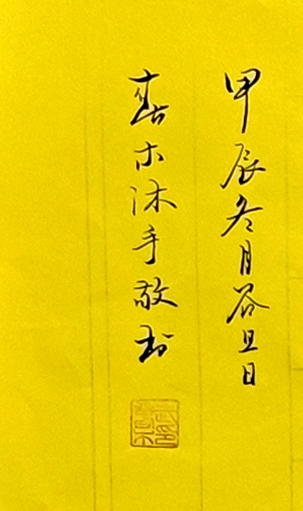 甲辰冬月谷旦日
嘉木沐手敬书